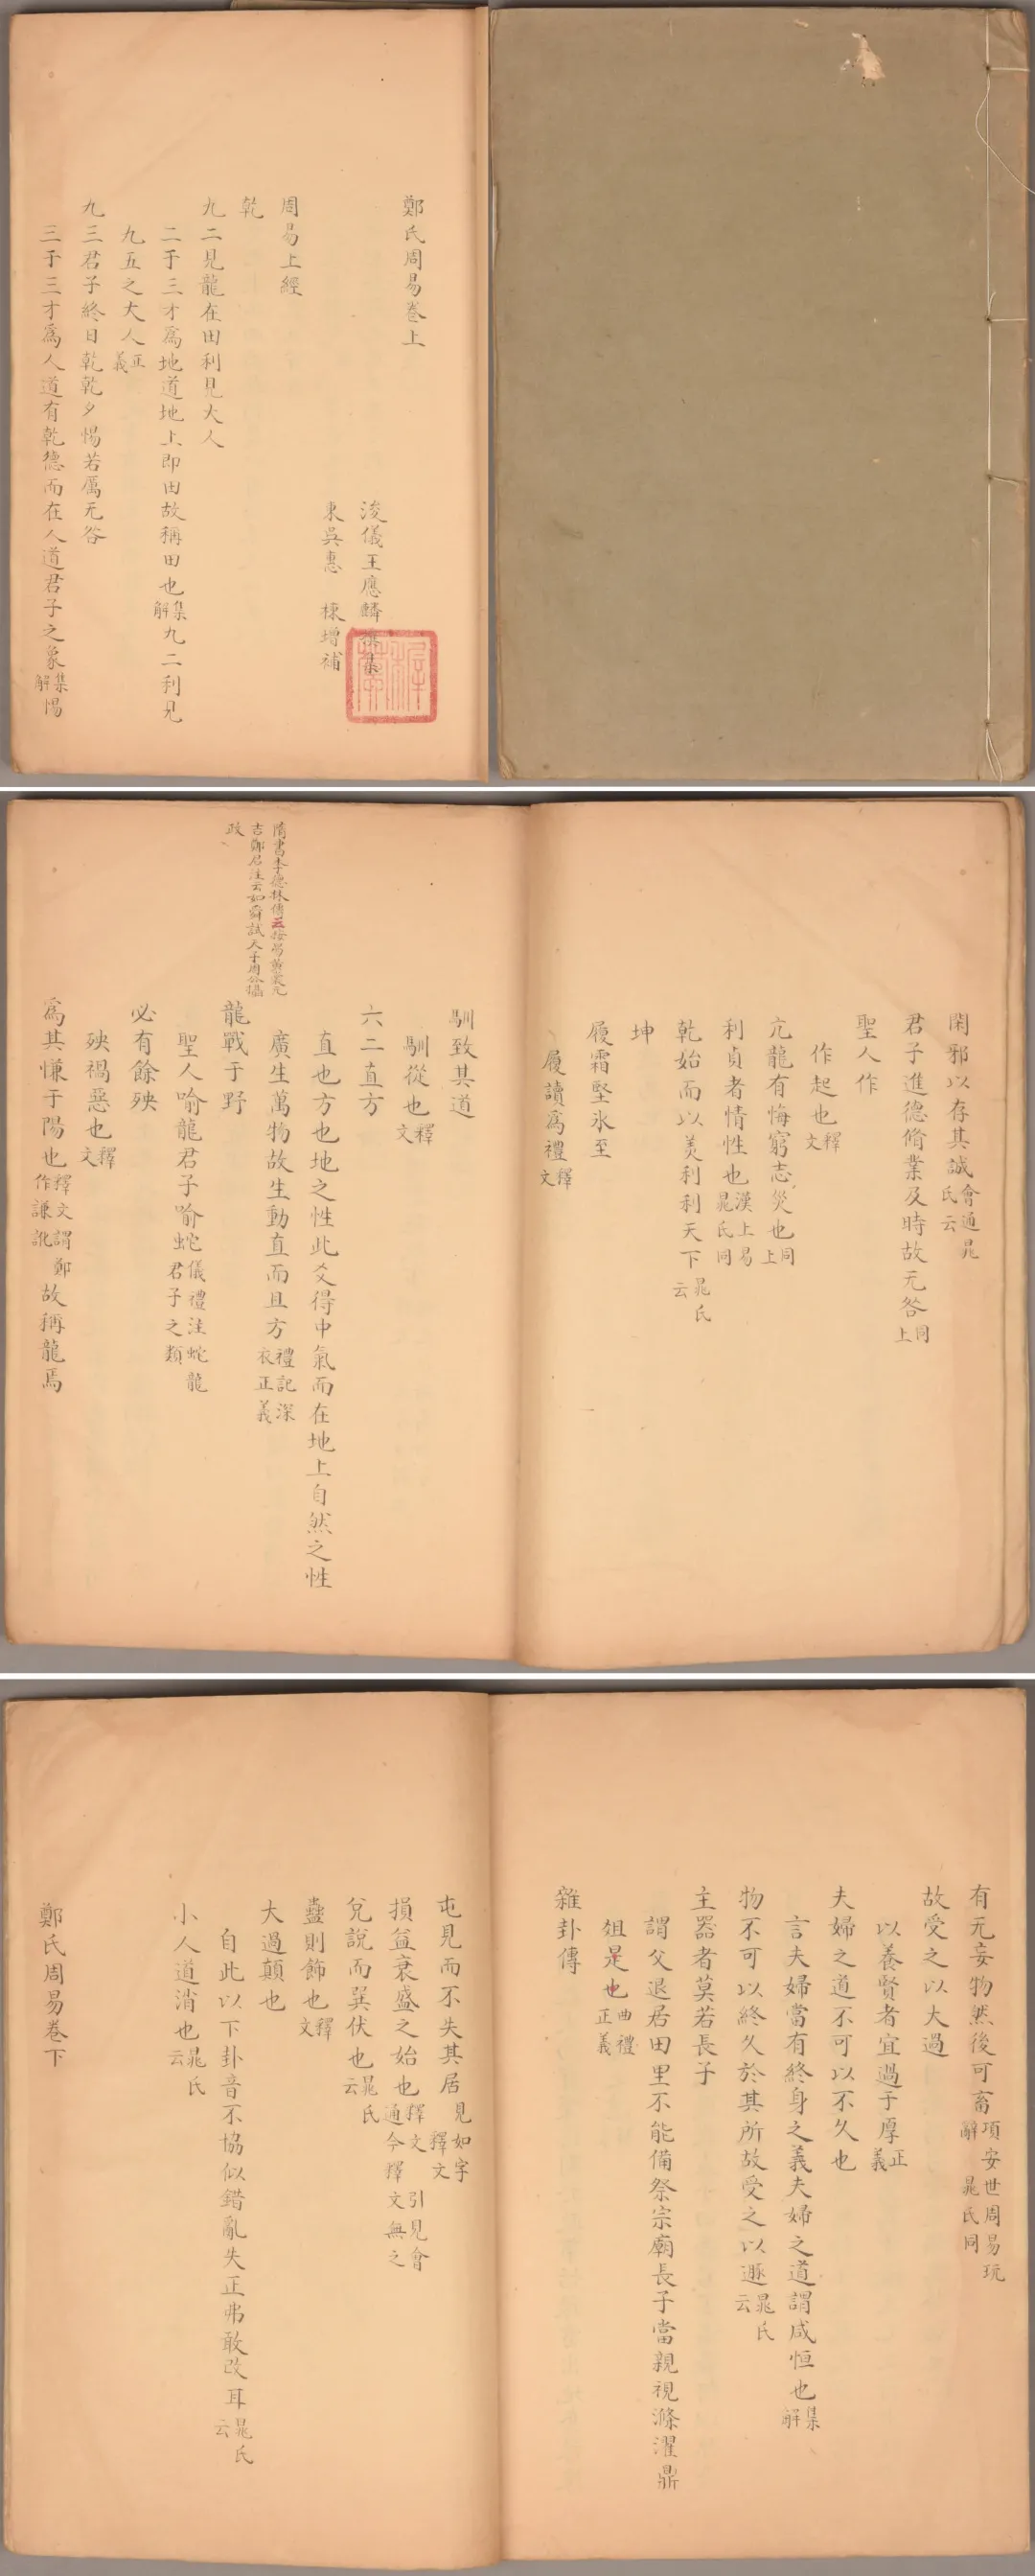 鄭氏周易卷上
浚儀王應麟撰集
東吳惠 棟增補
周易上經
乾
九二見龍在田利見大人
二于三才為地道地上即田故稱田也集解九二利見
九五之大人正義
九三君子終日乾乾夕惕若厲无咎
三于三才為人道有乾德而在人道君子之象集解惕
閑邪以存其誠會通晁氏云
君子進德脩業及時故无咎同上
聖人作
作起也釋文
亢龍有悔窮志災也同上
利貞者情性也漢上易晁氏同
乾始而以美利利天下晁氏云
坤
履霜堅氷至
履讀為禮釋文
馴致其道
馴從也釋文
六二直方
直也方也地之性此爻得中氣而在地上自然之性
廣生萬物故生動直而且方禮記深衣正義
隋書李德林傳三
吉鄭君注云如舜試天子周公攝
政
龍戰于野
聖人喻龍君子喻蛇儀禮注蛇龍君子之類
必有餘殃
殃禍惡也釋文
為其慊于陽也釋文謂鄭作謙訛故稱龍焉
有无妄物然後可畜項安世周易玩辭晁氏同
故受之以大過
以養賢者宜過于厚正義
夫婦之道不可以不久也
言夫婦當有終身之義夫婦之道謂咸恒也集解
物不可以終久於其所故受之以遯晁氏云
主器者莫若長子
謂父退居田里不能備祭宗廟長子當親視滌濯鼎
俎是也曲禮正義
雜卦傳
屯見而不失其居見如字釋文
損益衰盛之始也釋文引見會通今釋文無之
兌說而巽伏也晁氏云
蠱則飾也釋文
大過顛也
自此以下卦音不協似錯亂失正弗敢改耳晁氏云
小人道消也晁氏云
鄭氏周易卷下